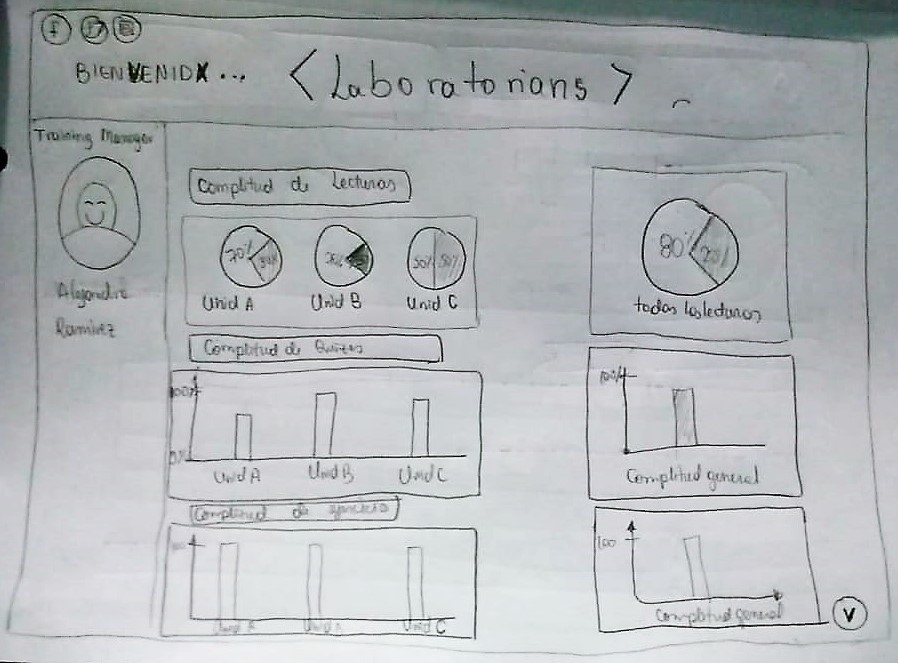 f
BIENVENIDX...
<Laboratorians>
Training Manager
Alejandra
Ramirez
Complitud de Lecturas
70%
30%
50% 50%
Unid A Unid B Unid C
80% 20%
todas las lecturas
Complitud de Quizes
100%
0%
Unid A Unid B Unid C
100%
Complitud general
Complitud de
Unid C
100
Complitud general
V